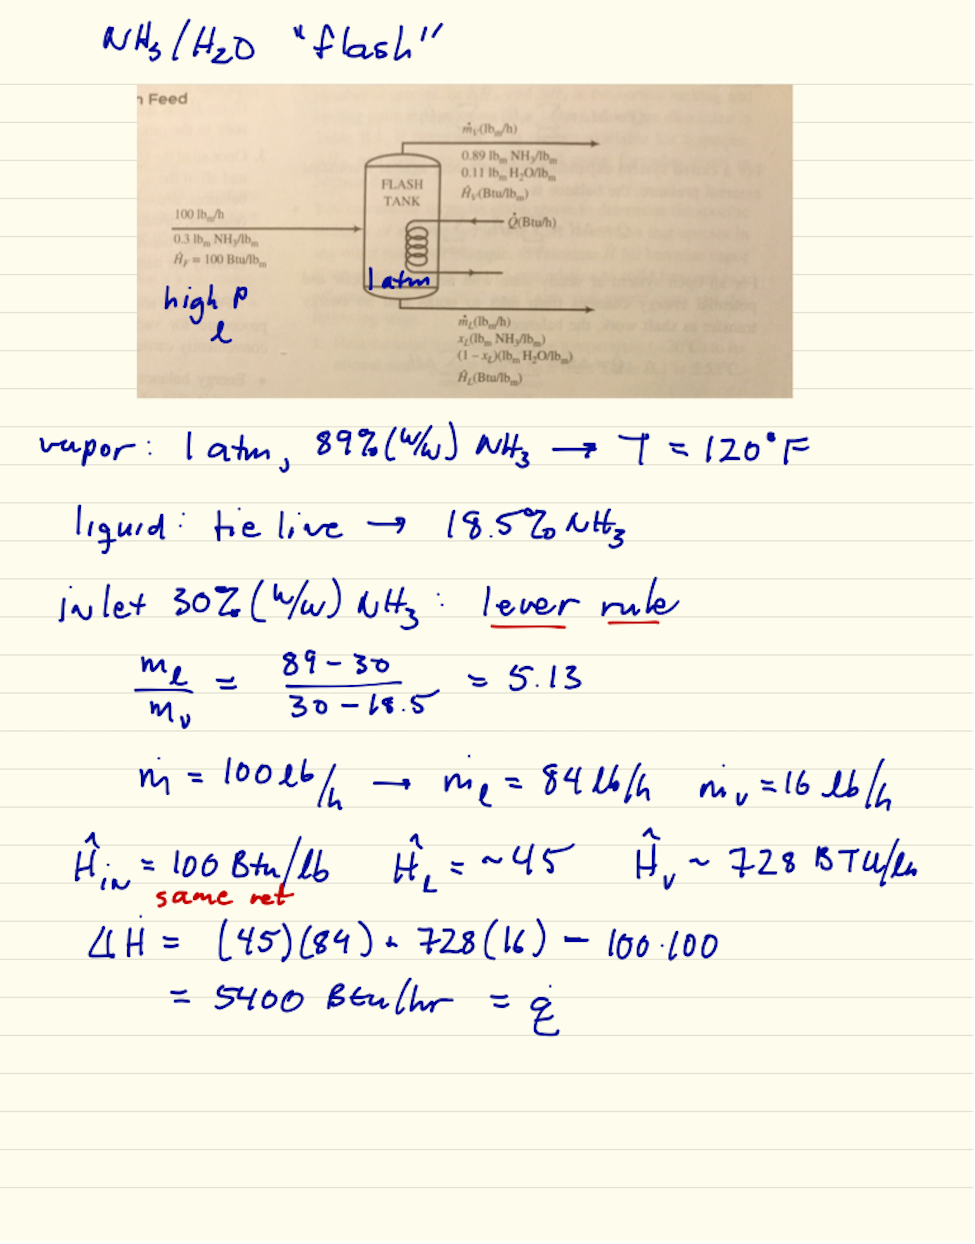 NH₃/H₂O "flash"
n Feed
ṁᵥ(lbₘ/h)
0.89 lbₘ NH₃/lbₘ
0.11 lbₘ H₂O/lbₘ
Ĥᵥ(Btu/lbₘ)
FLASH
TANK
Q̇(Btu/h)
100 lbₘ/h
0.3 lbₘ NH₃/lbₘ
Ĥ_F = 100 Btu/lbₘ
1 atm
high P
l
ṁ_L(lbₘ/h)
x_L(lbₘ NH₃/lbₘ)
(1 – x_L)(lbₘ H₂O/lbₘ)
Ĥ_L(Btu/lbₘ)
vapor: 1 atm, 89% (w/w) NH₃ → T = 120°F
liquid: tie line → 18.5% NH₃
inlet 30% (w/w) NH₃: lever rule
m_l/m_v = (89 - 30)/(30 - 18.5) = 5.13
ṁ = 100 lb/h → ṁ_l = 84 lb/h ṁ_v = 16 lb/h
Ĥ_IN = 100 Btu/lb Ĥ_L = ~45 Ĥ_v ~ 728 BTU/lb
same ref
ΔḢ = (45)(84) + 728(16) - 100·100
= 5400 Btu/hr = q̇